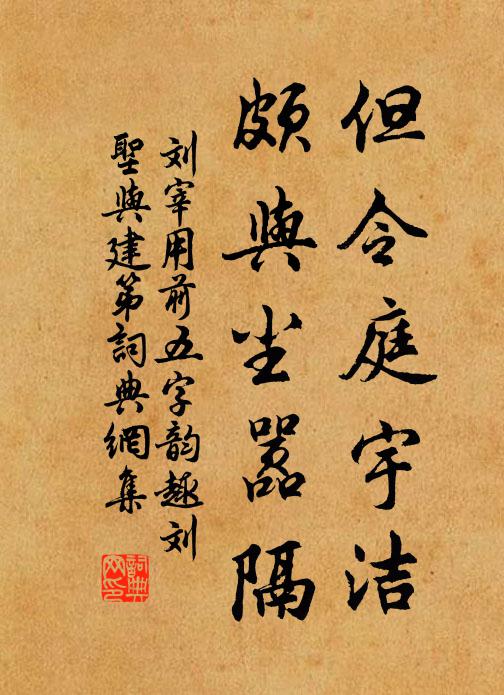 但令庭宇洁
颇与尘嚣隔
刘宰用前五字韵趣刘
圣与建第詞典網集
詞典
网印